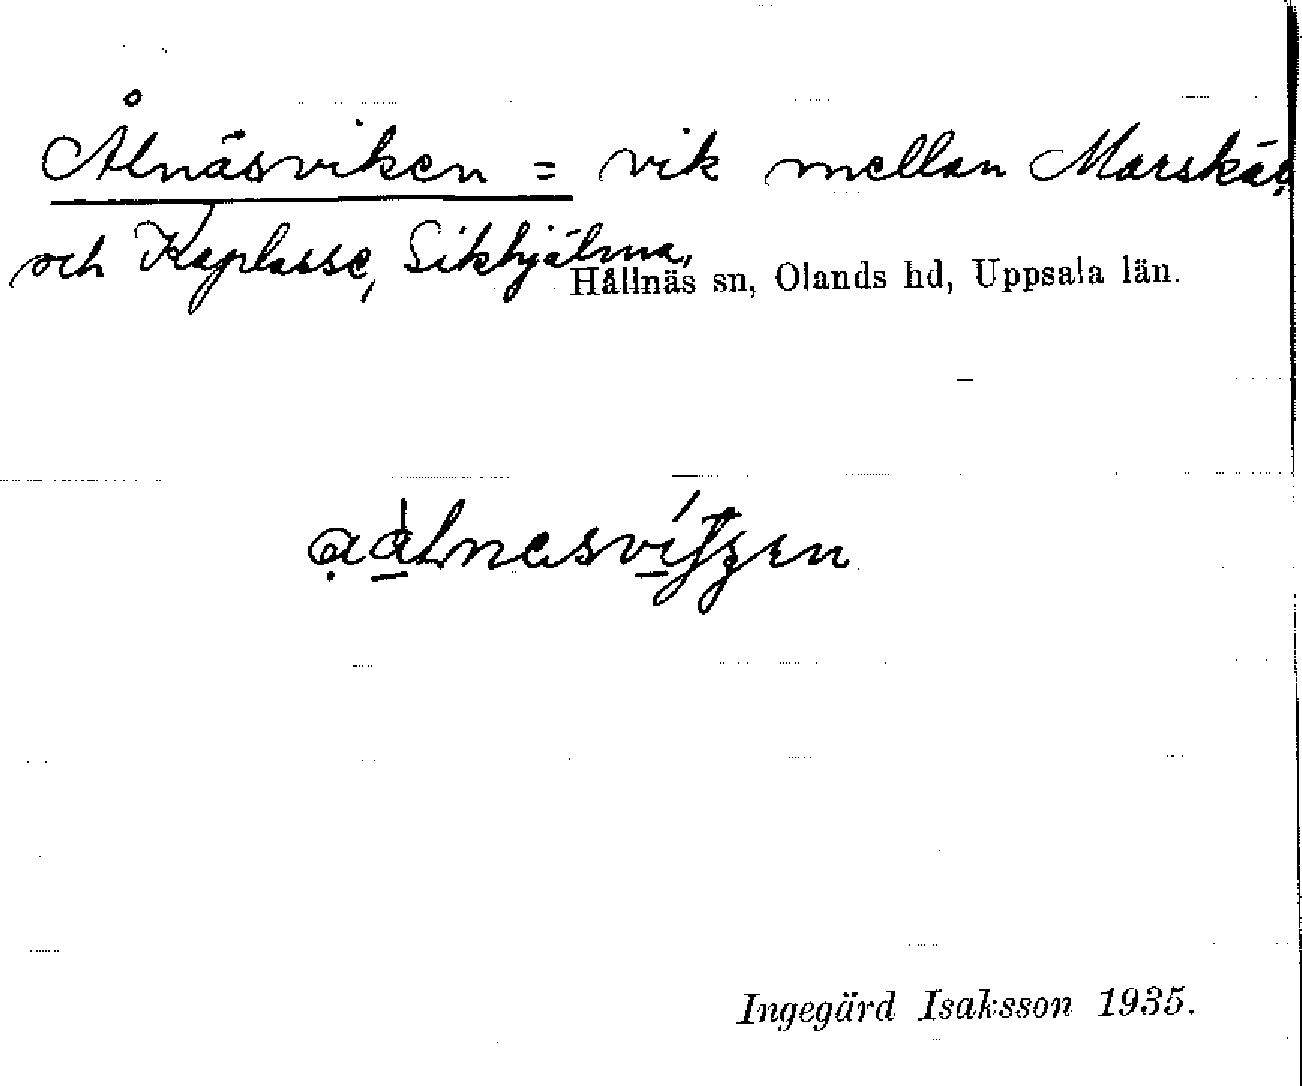 Ålnäsviken = vik mellan Marskär
och Kaplasse, Sikhjälma,
Hållnäs sn, Olands hd, Uppsala län.
Ingegärd Isaksson 1935.